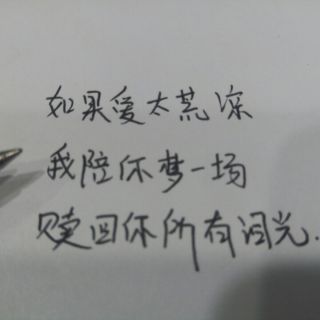 如果爱太荒凉
我陪你梦一场
赎回你所有泪光.